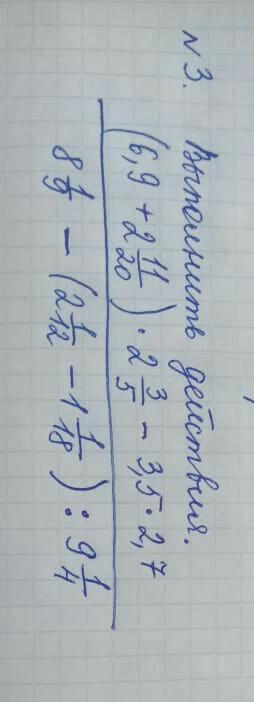 N 3. Выполнить действия.
(6,9 + 2 11/20) · 2 3/5 − 3,5 · 2,7
8 1/9 − (2 1/12 − 1 1/18) : 9 1/4